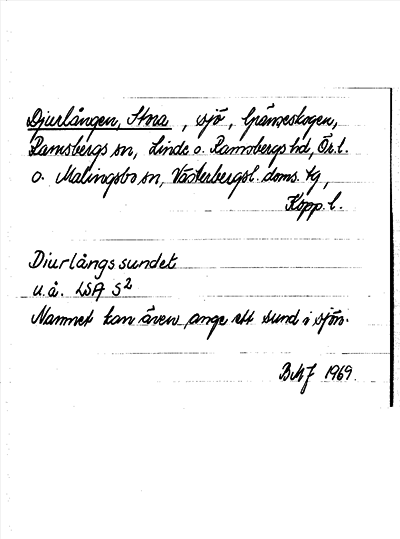 Djurlången, Stora, sjö, Grängeskogen,
Ramsbergs sn, Linde o. Ramsbergs hd, Ör.l.
o. Malingsbo sn, Västerbergsl. doms. tg,
Kopp. l.
Diurlångssundet
u.å. LSA S2
Namnet kan även ange ett sund i sjön.
1969.